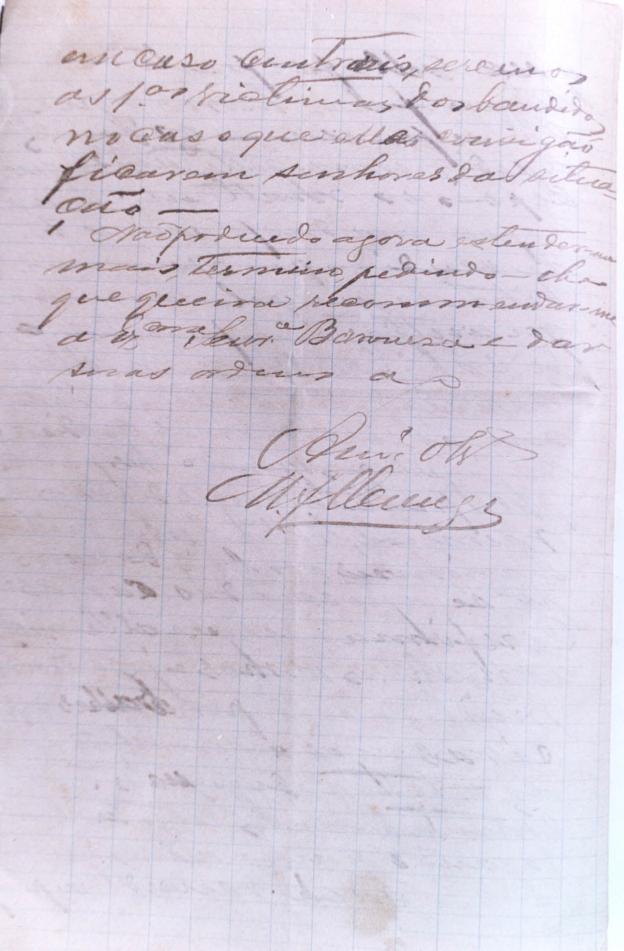 em caso contrario, seremos
as 1.as victimas dos bandidos
no caso que elles consigão
ficarem senhores da situa-
ção —
Não podendo agora estender-me
mais termino, pedindo-lhe
que queira recommendar-me
a Ex.ma Snr.a Baroneza e dar
suas ordens ao
Am.o Obr.o